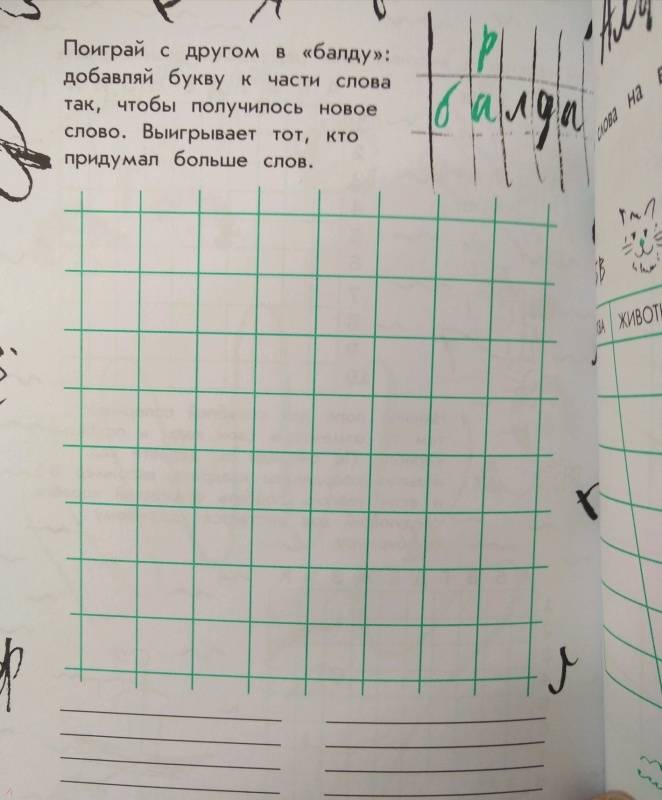 Поиграй с другом в «балду»:
добавляй букву к части слова
так, чтобы получилось новое
слово. Выигрывает тот, кто
придумал больше слов.
р
балда
слова на
ЖИВОТН